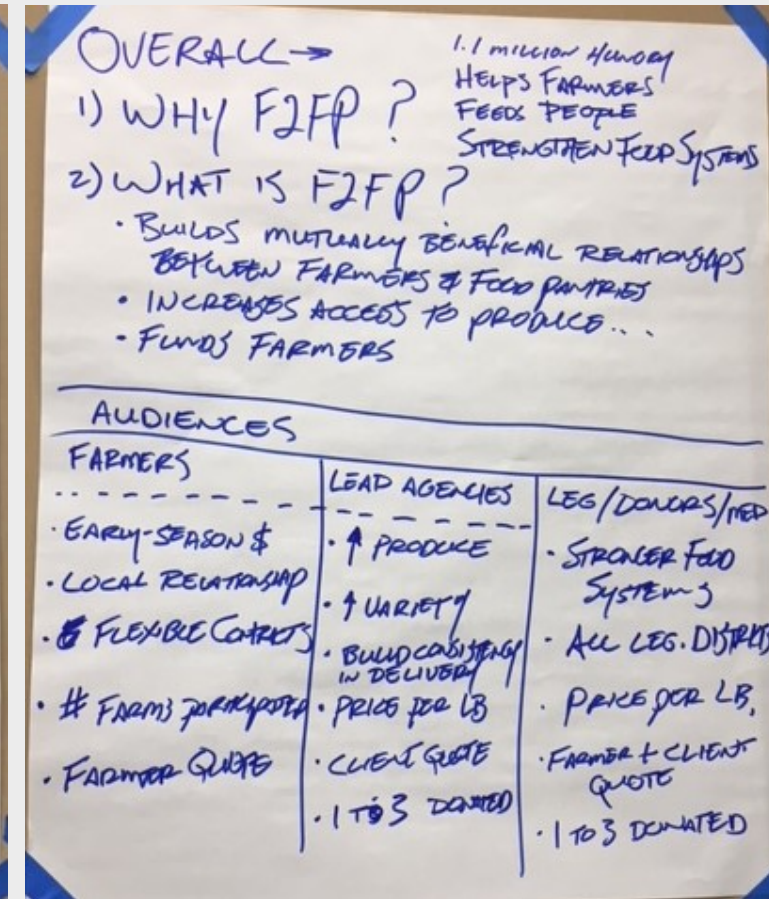 OVERALL →
1.1 MILLION HUNGRY
HELPS FARMERS
FEEDS PEOPLE
STRENGTHEN FOOD SYSTEMS
1) WHY F2FP?
2) WHAT IS F2FP?
· BUILDS MUTUALLY BENEFICIAL RELATIONSHIPS
BETWEEN FARMERS & FOOD PANTRIES
· INCREASES ACCESS TO PRODUCE...
· FUNDS FARMERS
AUDIENCES
FARMERS
· EARLY-SEASON $
· LOCAL RELATIONSHIP
· FLEXIBLE CONTRCTS
· # FARMS PARTICIPATED
· FARMER QUOTE
LEAD AGENCIES
· ↑ PRODUCE
· ↑ VARIETY
· BUILD CONSISTENCY
IN DELIVERY
· PRICE PER LB
· CLIENT QUOTE
· 1 TO 3 DONATED
LEG/DONORS/MED
· STRONGER FOOD
SYSTEMS
· ALL LEG. DISTRICTS
· PRICE PER LB.
· FARMER + CLIENT
QUOTE
· 1 TO 3 DONATED